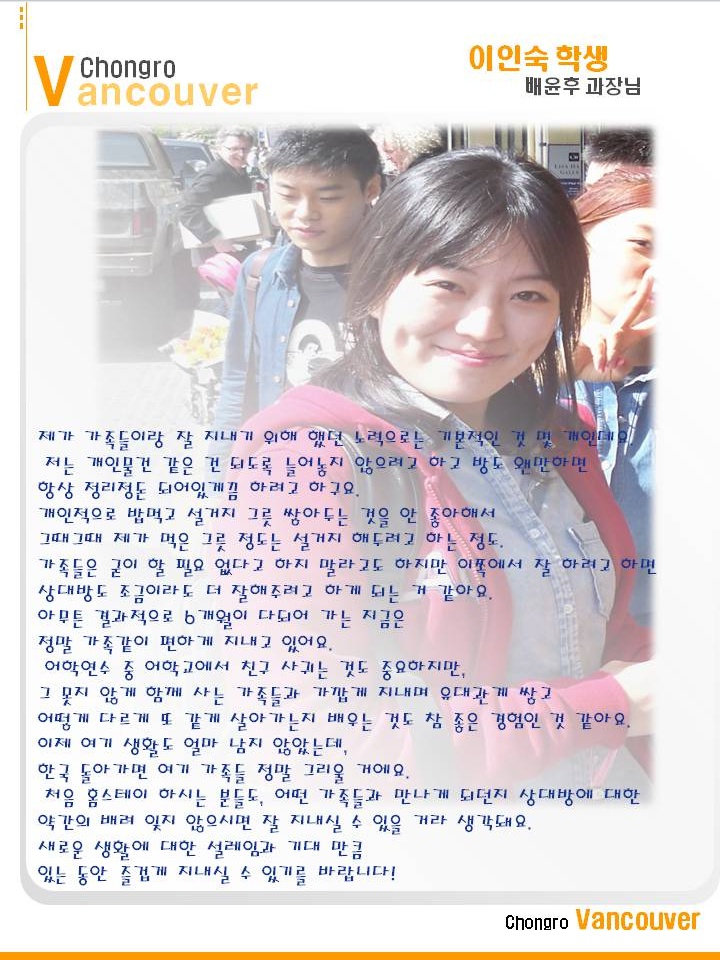 Chongro
Vancouver
이인숙 학생
배윤후 과장님
제가 가족들이랑 잘 지내기 위해 했던 노력으로는 기본적인 것 몇 개인데요.
저는 개인물건 같은 건 되도록 늘어놓지 않으려고 하고 방도 왠만하면
항상 정리정돈 되어있게끔 하려고 하구요.
개인적으로 밥먹고 설거지 그릇 쌓아두는 것을 안 좋아해서
그때그때 제가 먹은 그릇 정도는 설거지 해두려고 하는 정도.
가족들은 굳이 할 필요 없다고 하지 말라고도 하지만 이쪽에서 잘 하려고 하면
상대방도 조금이라도 더 잘해주려고 하게 되는 거 같아요.
아무튼 결과적으로 6개월이 다되어 가는 지금은
정말 가족같이 편하게 지내고 있어요.
어학연수 중 어학교에서 친구 사귀는 것도 중요하지만,
그 못지 않게 함께 사는 가족들과 가깝게 지내며 유대관계 쌓고
어떻게 다르게 또 같게 살아가는지 배우는 것도 참 좋은 경험인 것 같아요.
이제 여기 생활도 얼마 남지 않았는데,
한국 돌아가면 여기 가족들 정말 그리울 거에요.
처음 홈스테이 하시는 분들도, 어떤 가족들과 만나게 되던지 상대방에 대한
약간의 배려 잊지 않으시면 잘 지내실 수 있을 거라 생각돼요.
새로운 생활에 대한 설레임과 기대 만큼
있는 동안 즐겁게 지내실 수 있기를 바랍니다!
Chongro Vancouver